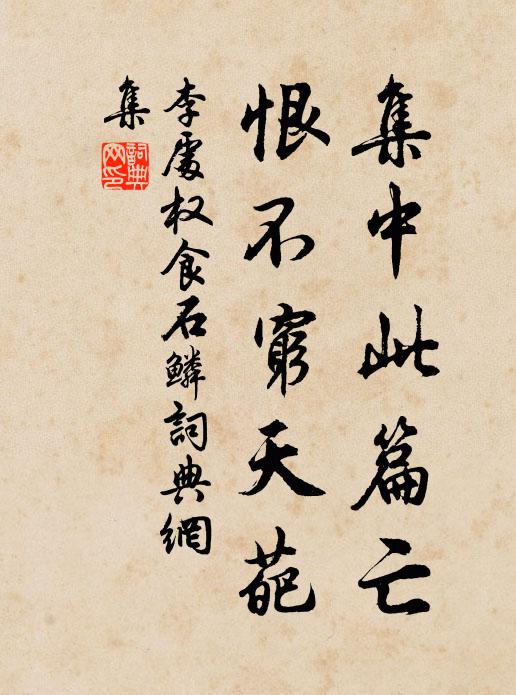 集中此篇亡
恨不窮天葩
李處权食石鱗詞典網
集
詞典網印